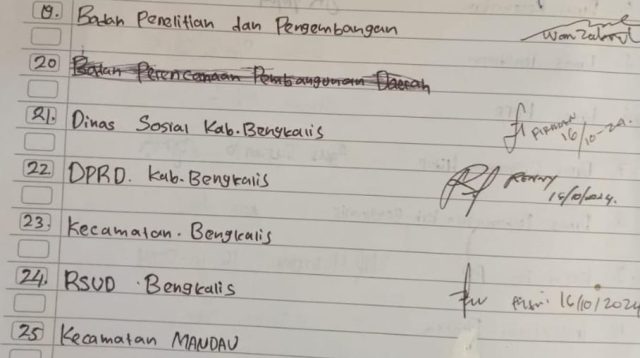 19. Badan Penelitian dan Pengembangan Wan Zabrul
20 Badan Perencanaan Pembangunan Daerah
21. Dinas Sosial Kab. Bengkalis FIRMAN 16/10-24.
22. DPRD. Kab. Bengkalis RONNY 16/10/2024.
23. Kecamatan. Bengkalis
24. RSUD . Bengkalis 16/10/2024
25 Kecamatan MANDAU